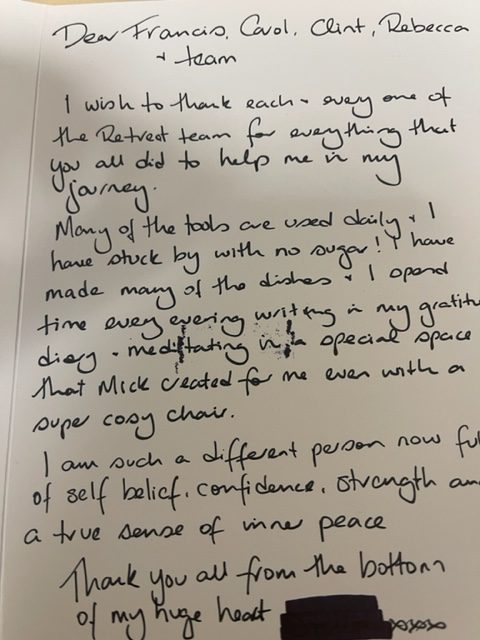 Dear Francis, Carol, Clint, Rebecca
+ team
I wish to thank each + every one of
the Retreat team for everything that
you all did to help me in my
journey.
Many of the tools are used daily + I
have stuck by with no sugar! I have
made many of the dishes + I spend
time every evening writing in my gratitu
diary + meditating in a special space
that Mick created for me even with a
super cosy chair.
I am such a different person now fu
of self belief, confidence, strength an
a true sense of inner peace
Thank you all from the bottom
of my huge heart xxxxx